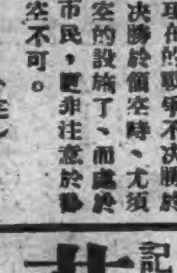 現在的戰爭不决勝於
决勝於領空時、尤須
空的設施了、而處於
市民、更非注意於防
空不可。
記